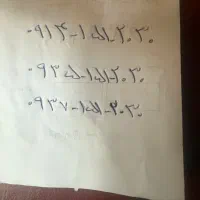 ۰۹۱۴-۱۵۱-۲۰۳۰
۰۹۳۵-۱۵۱-۲۰۳۰
۰۹۳۷-۱۵۱-۲۰۳۰